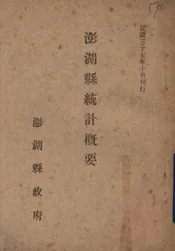 民國三十五年十月刊行
澎湖縣統計概要
澎湖縣政府